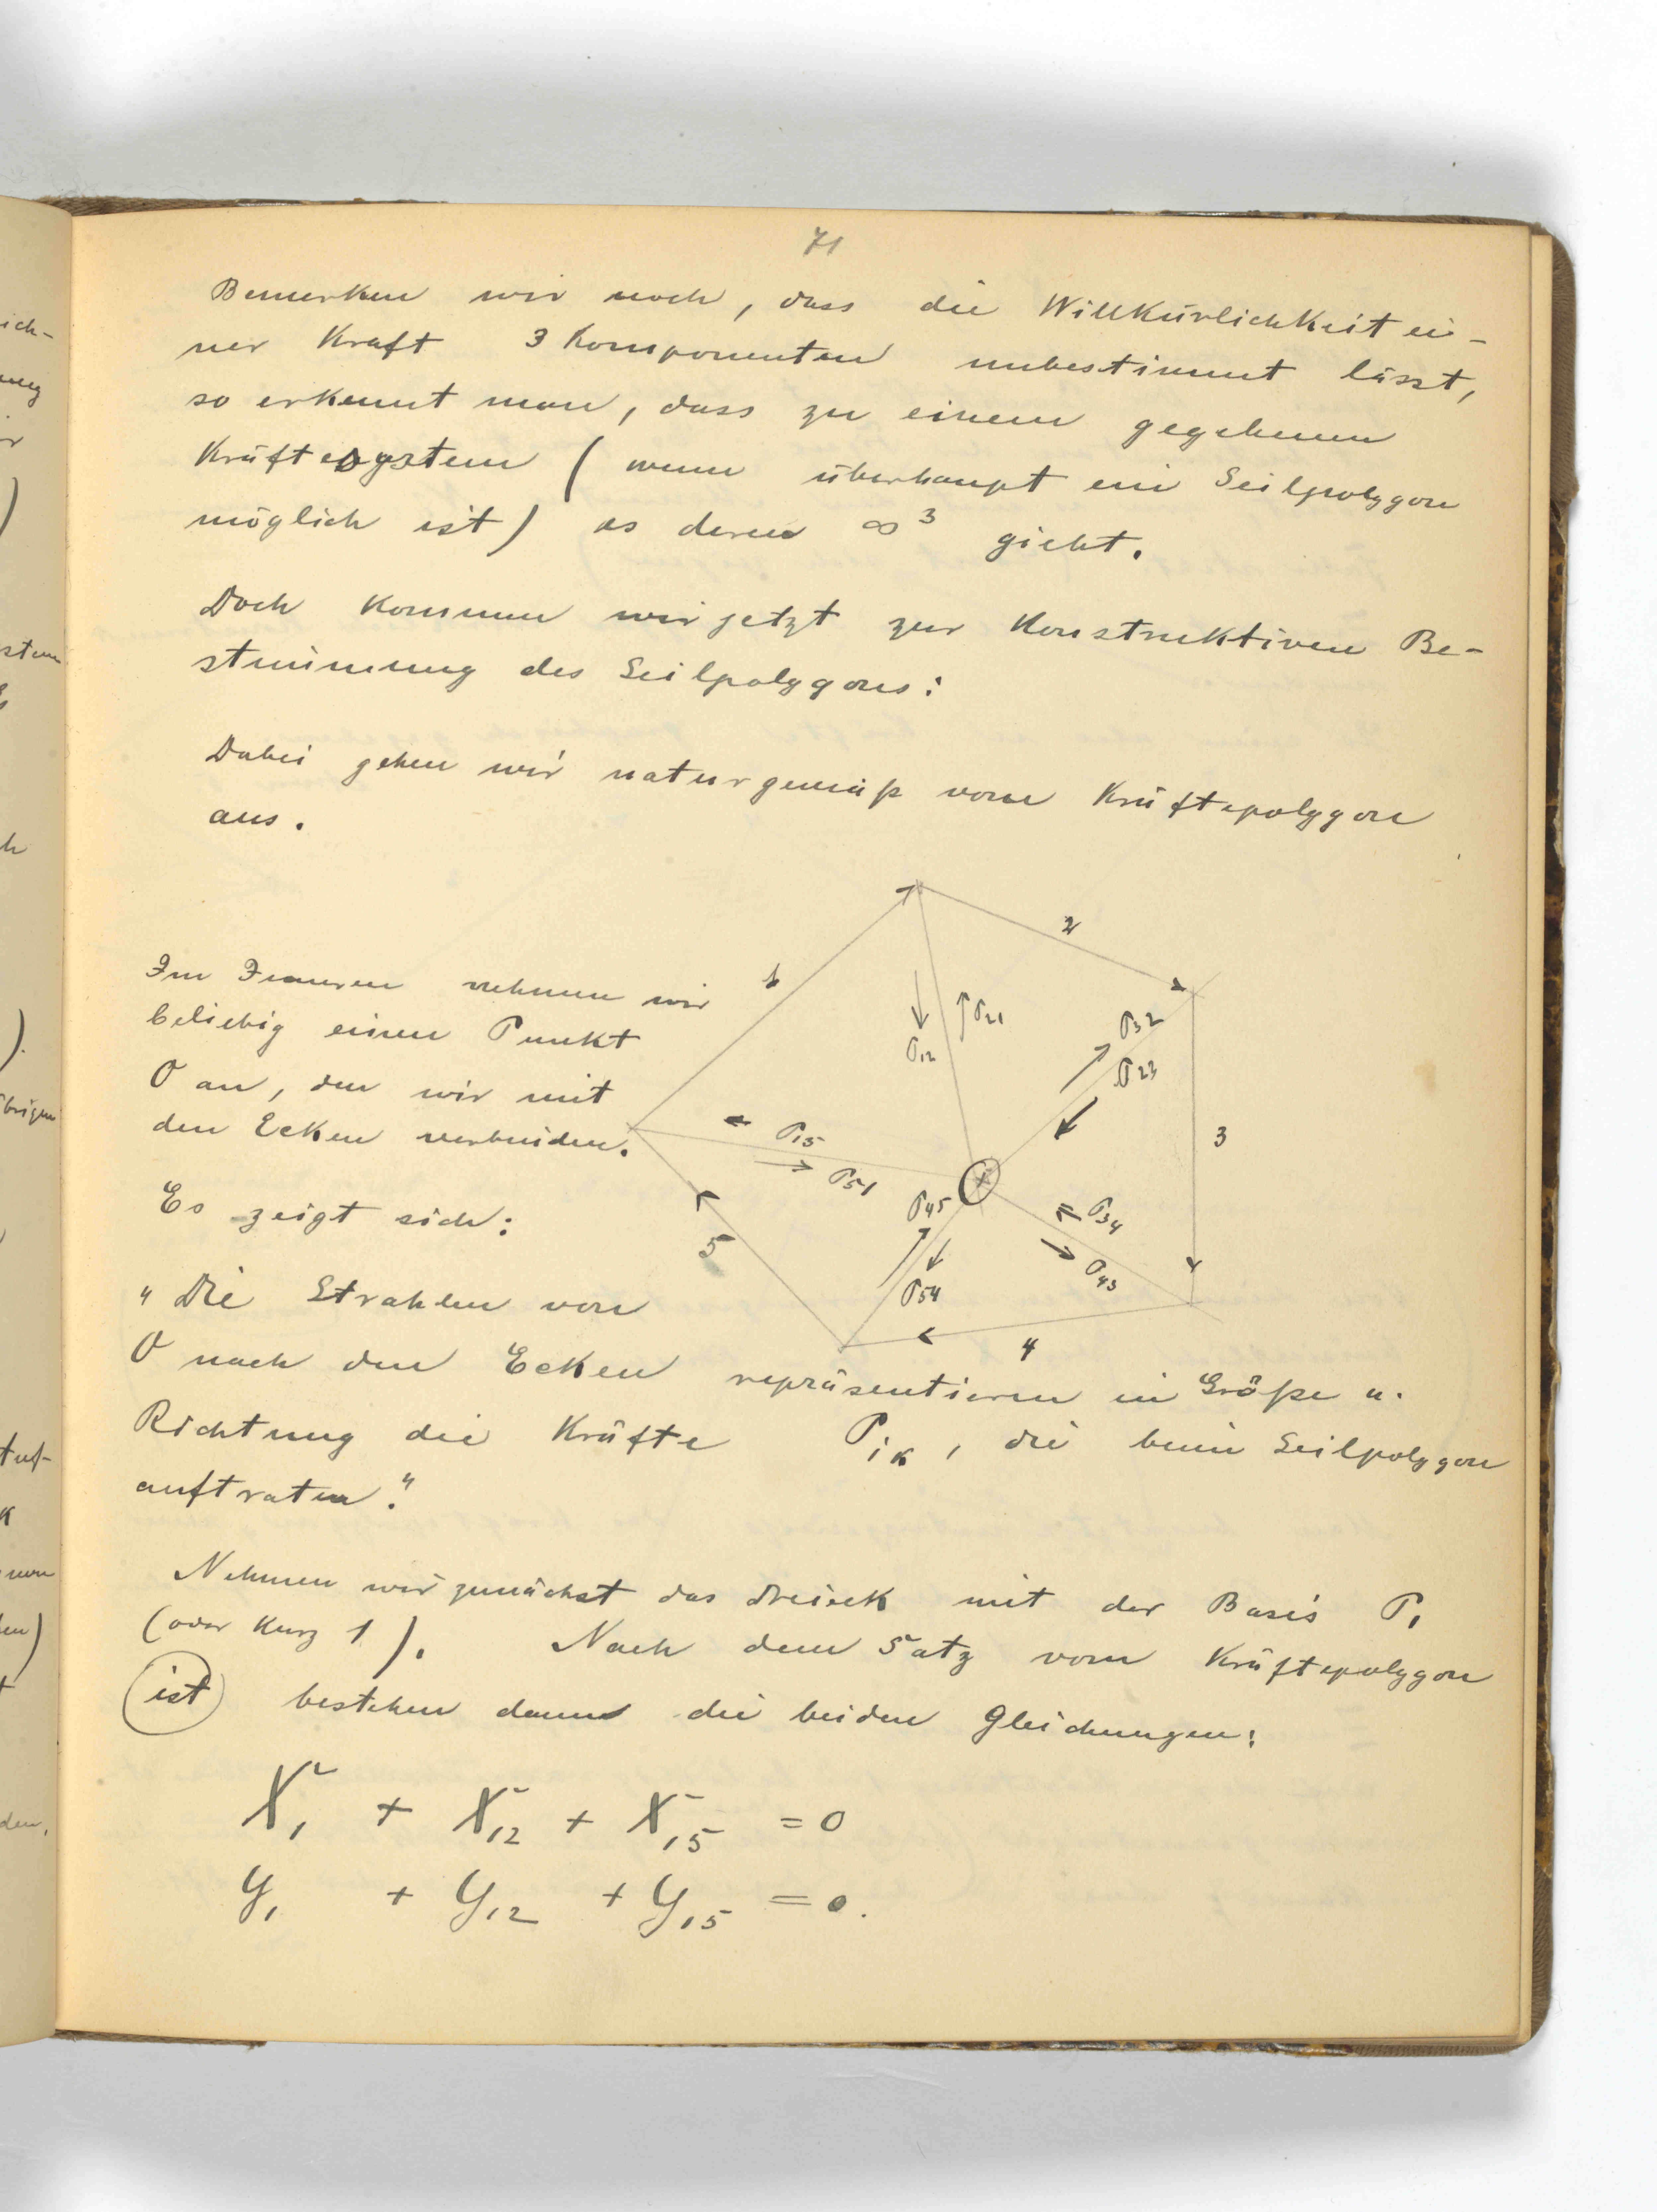 71
Bemerken wir noch, dass die Willkürlichkeit ei-
ner Kraft 3 Komponenten unbestimmt lässt,
so erkennt man, dass zu einem gegebenen
Kräftesystem (wenn überhaupt ein Seilpolygon
möglich ist) es deren ∞³ giebt.
Doch kommen wir jetzt zur Konstruktiven Be-
stimmung des Seilpolygons:
Dabei gehen wir naturgemäß vom Kräftepolygon
aus.
Im Inneren nehmen wir
beliebig einen Punkt
O an, den wir mit
den Ecken verbinden.
Es zeigt sich:
"Die Strahlen von
O nach den Ecken repräsentieren in Größe u.
Richtung die Kräfte P_ik, die beim Seilpolygon
auftraten."
1
2
3
4
5
P12
P21
P32
P23
P15
P51
P45
P54
P34
P43
O
Nehmen wir zunächst das Dreieck mit der Basis P₁
(oder kurz 1). Nach dem Satz vom Kräftepolygon
ist bestehen dann die beiden Gleichungen:
X₁ + X₁₂ + X₁₅ = 0
Y₁ + Y₁₂ + Y₁₅ = 0.